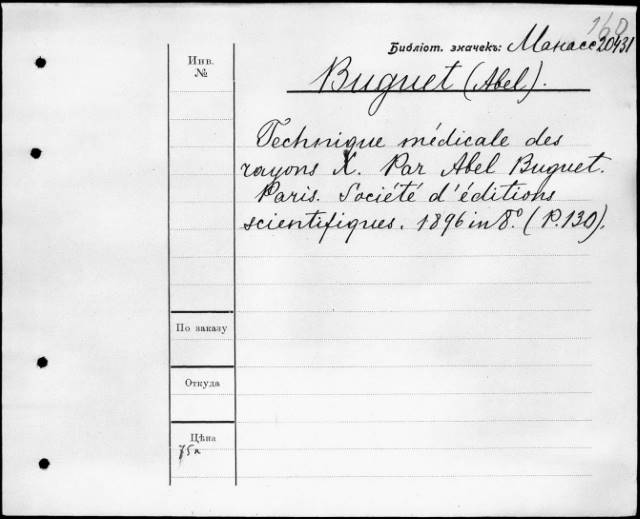 160
Библіот. значекъ: Манасс 20431
Инв.
№
Buguet (Abel).
Technique médicale des
rayons X. Par Abel Buguet.
Paris. Société d'éditions
scientifiques. 1896 in 8º. (P. 130).
По заказу
Откуда
Цѣна